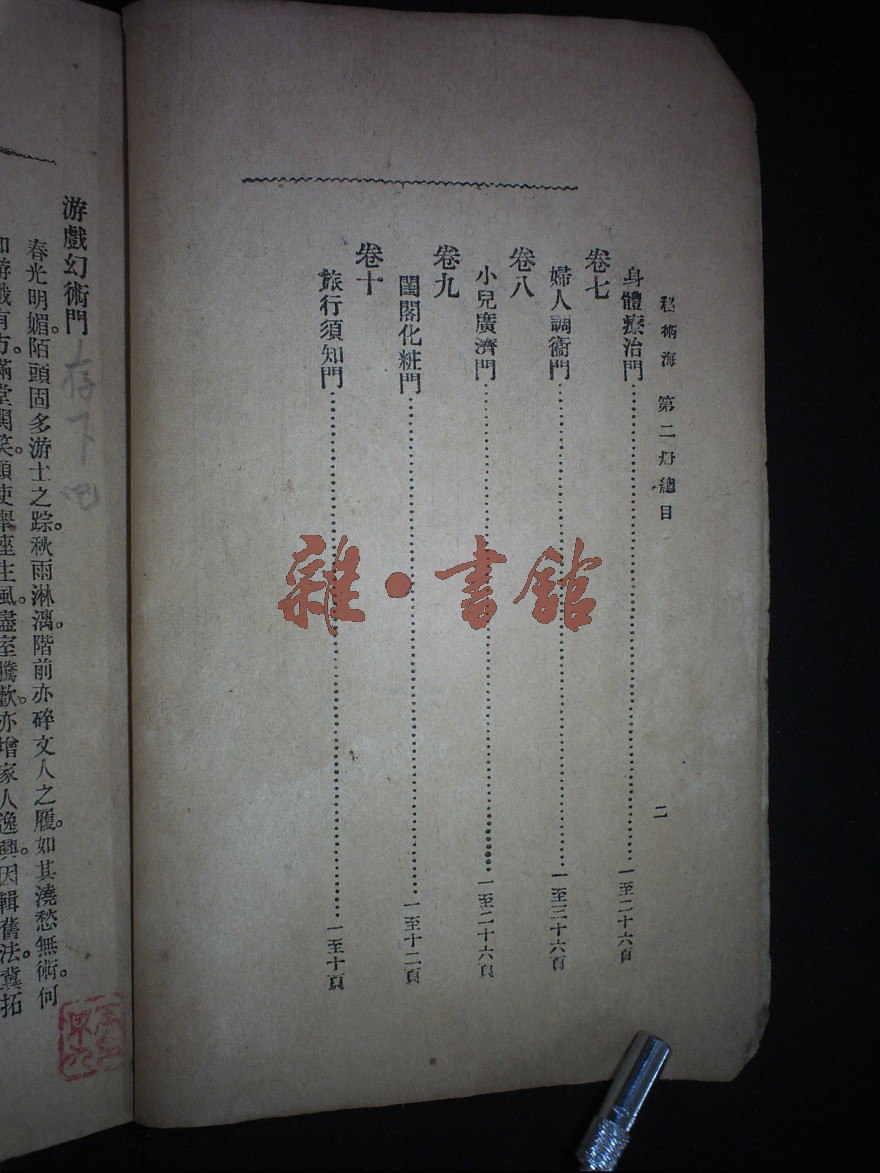 秘術海 第二册總目
二
身體療治門……一至二十六頁
卷七
婦人調衞門……一至三十六頁
卷八
小兒廣濟門……一至二十六頁
卷九
閨閣化粧門……一至十二頁
卷十
旅行須知門……一至十頁
雜·書館
游戲幻術門
存下
春光明媚。陌頭固多游士之踪。秋雨淋漓。階前亦碎文人之履。如其澆愁無術。何
如游戲有方。滿堂鬨笑。頓使舉座生風。盡室騰歡。亦增家人逸興。因輯舊法。冀拓